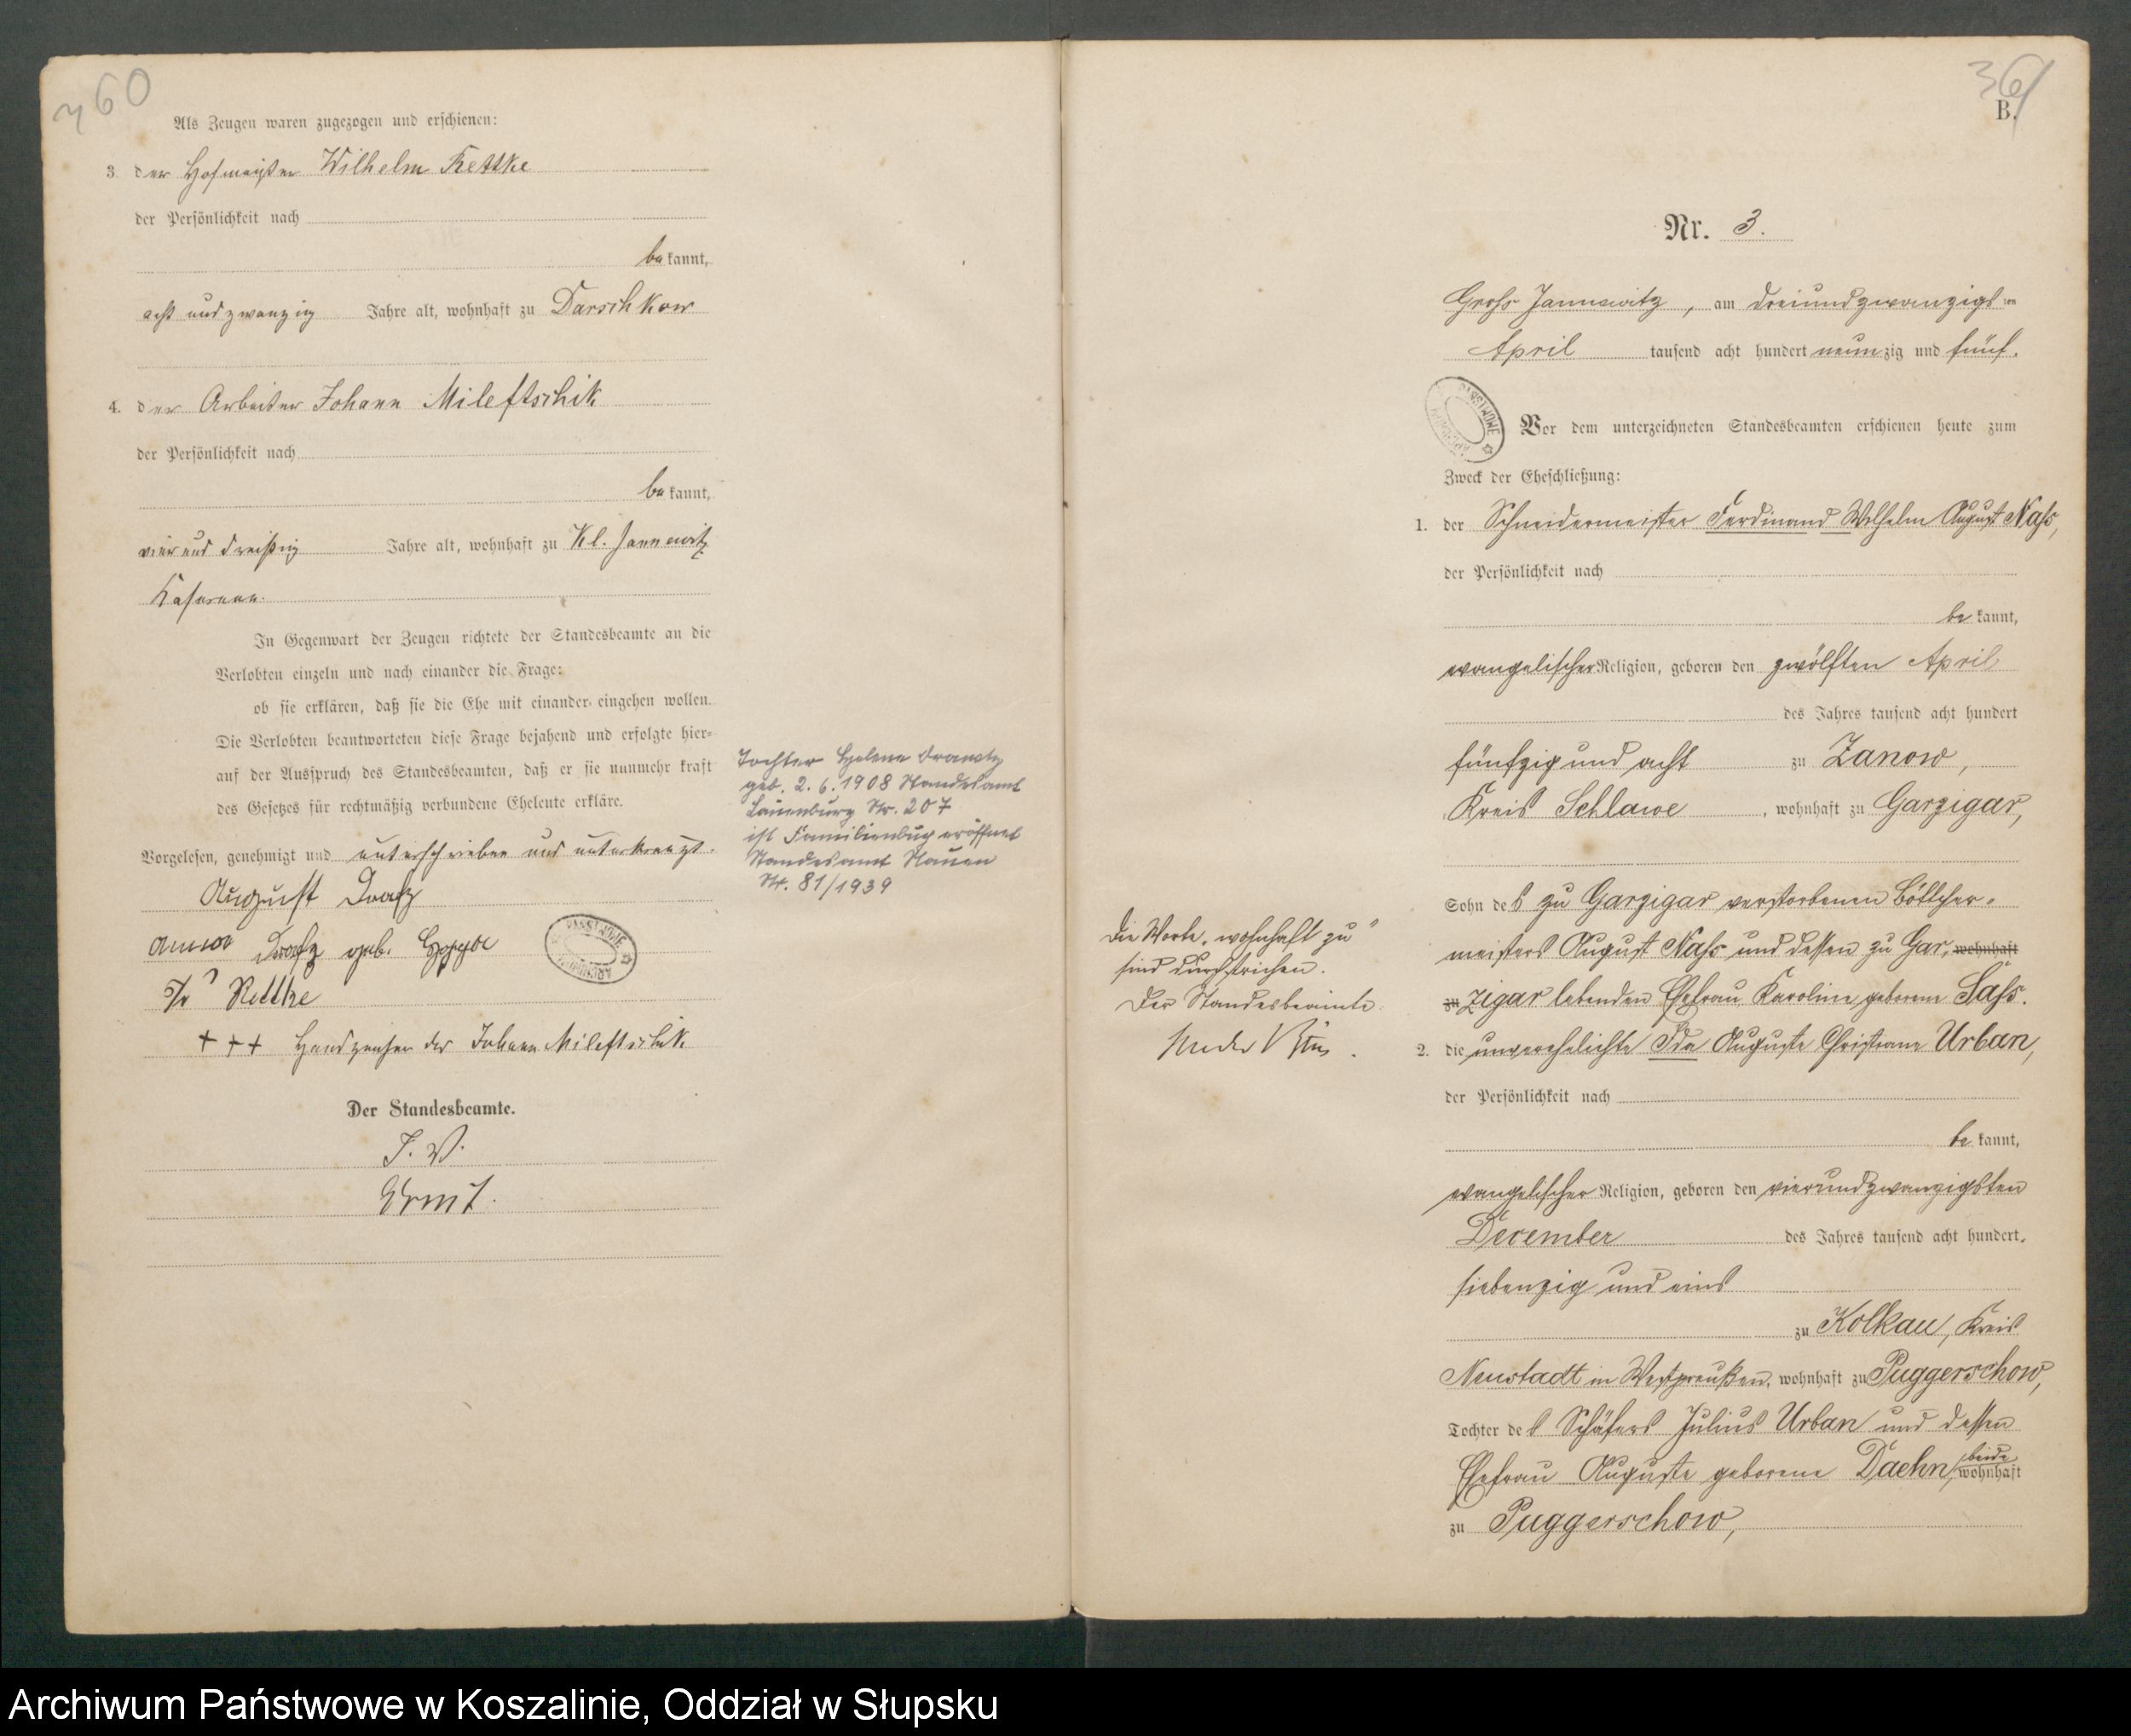 360
Als Zeugen waren zugezogen und erschienen:
3. der Hofmeister Wilhelm Rettke
der Persönlichkeit nach
bekannt,
acht und zwanzig Jahre alt, wohnhaft zu Darschkow
4. der Arbeiter Johann Mileftschik
der Persönlichkeit nach
bekannt,
vier und dreißig Jahre alt, wohnhaft zu Kl. Jannewitz
In Gegenwart der Zeugen richtete der Standesbeamte an die
Verlobten einzeln und nach einander die Frage:
ob sie erklären, daß sie die Ehe mit einander eingehen wollen.
Die Verlobten beantworteten diese Frage bejahend und erfolgte hier-
auf der Ausspruch des Standesbeamten, daß er sie nunmehr kraft
des Gesetzes für rechtmäßig verbundene Eheleute erkläre.
Vorgelesen, genehmigt und unterschrieben und unterkreuzt.
August
geb.
Rettke
+++ Handzeichen des Johann Mileftschik
Der Standesbeamte.
J. V.
Tochter Helene
geb. 2.6.1908 Standesamt
Lauenburg Nr. 207
ist Familienbuch eröffnet
Standesamt Nauen
Nr. 81/1939
ARCHIWUM PAŃSTWOWE
361
B.
Nr. 3.
Gross Jannewitz, am dreiundzwanzigsten
April tausend acht hundert neunzig und fünf.
ARCHIWUM PAŃSTWOWE
Vor dem unterzeichneten Standesbeamten erschienen heute zum
Zweck der Eheschließung:
1. der Schneidermeister Ferdinand Wilhelm August Nass,
der Persönlichkeit nach
bekannt,
evangelischer Religion, geboren den zwölften April
des Jahres tausend acht hundert
fünfzig und acht zu Zanow,
Kreis Schlawe, wohnhaft zu Garzigar,
Sohn des zu Garzigar verstorbenen Böttcher-
meisters August Nass und dessen zu Gar- wohnhaft
zu zigar lebenden Ehefrau Karoline geborene Säss.
2. die unverehelichte Ida Auguste Christiane Urban,
der Persönlichkeit nach
bekannt,
evangelischer Religion, geboren den vierundzwanzigsten
December des Jahres tausend acht hundert
siebenzig und eins
zu Kolkau, Kreis
Neustadt in Westpreußen, wohnhaft zu Puggerschow,
Tochter des Schäfers Julius Urban und dessen
Ehefrau Auguste geborene Daehn, beide wohnhaft
zu Puggerschow,
Die Worte „wohnhaft zu"
sind durchstrichen.
Der Standesbeamte.
Archiwum Państwowe w Koszalinie, Oddział w Słupsku